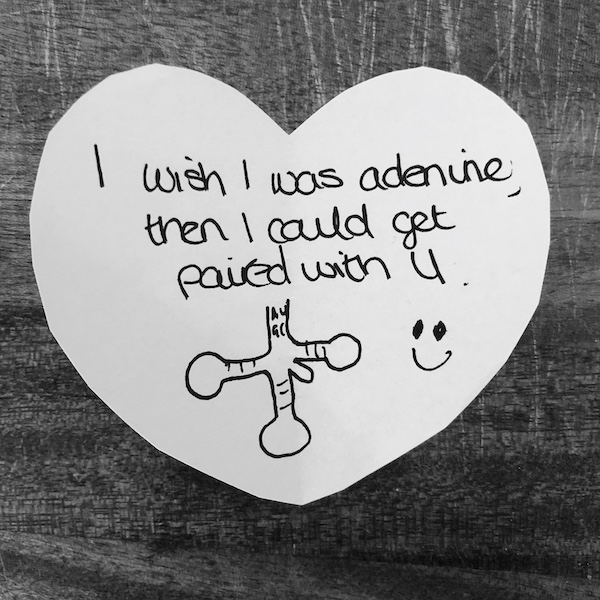 I wish I was adenine,
then I could get
paired with U.
AU
GC